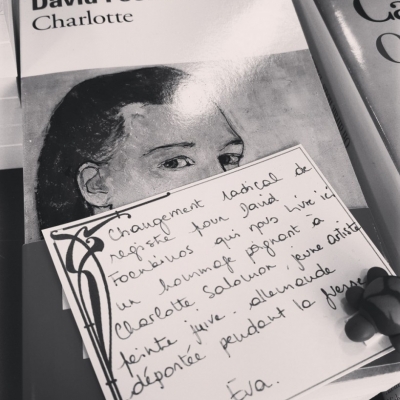 David Fo
Charlotte
Ca
Changement radical de
registre pour David
Foenkinos qui nous livre ici
un hommage poignant à
Charlotte Salomon, jeune artiste
peintre juive allemande
déportée pendant la guerre
Eva.